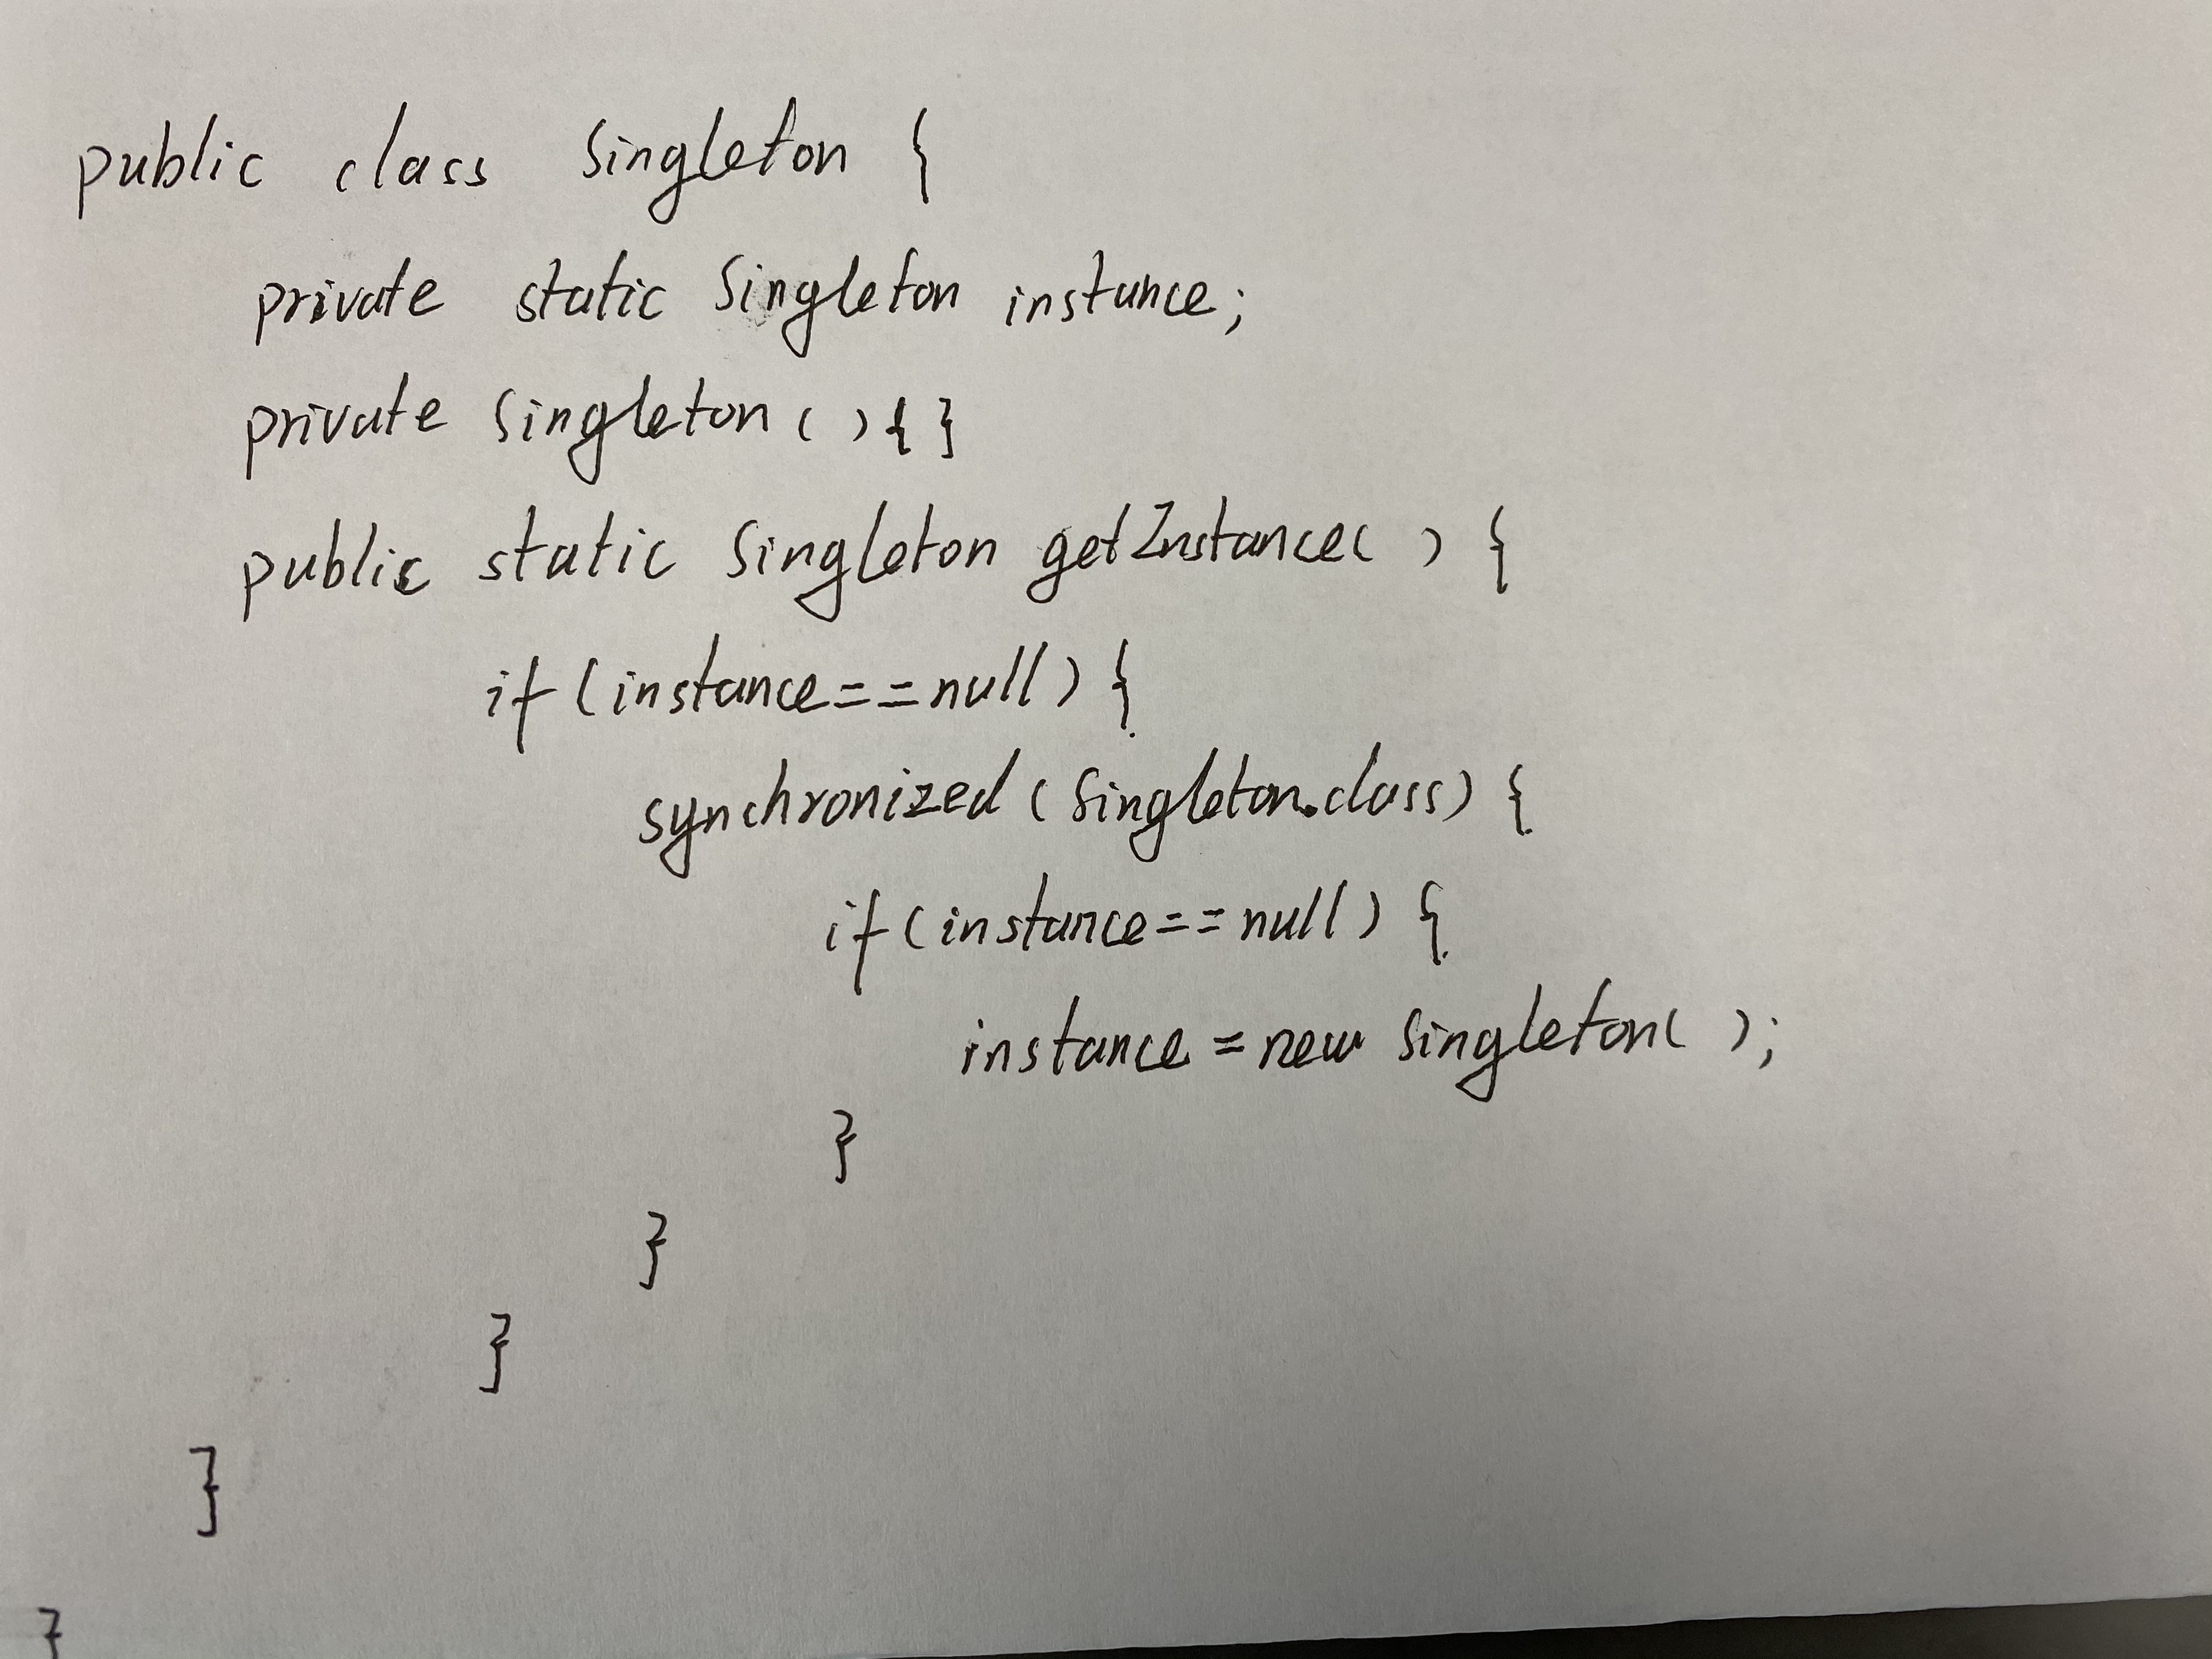 public class Singleton {
private static Singleton instance;
private Singleton(){}
public static Singleton getInstance() {
if(instance==null){
synchronized(Singleton.class){
if(instance==null){
instance=new Singleton();
}
}
}
}
}